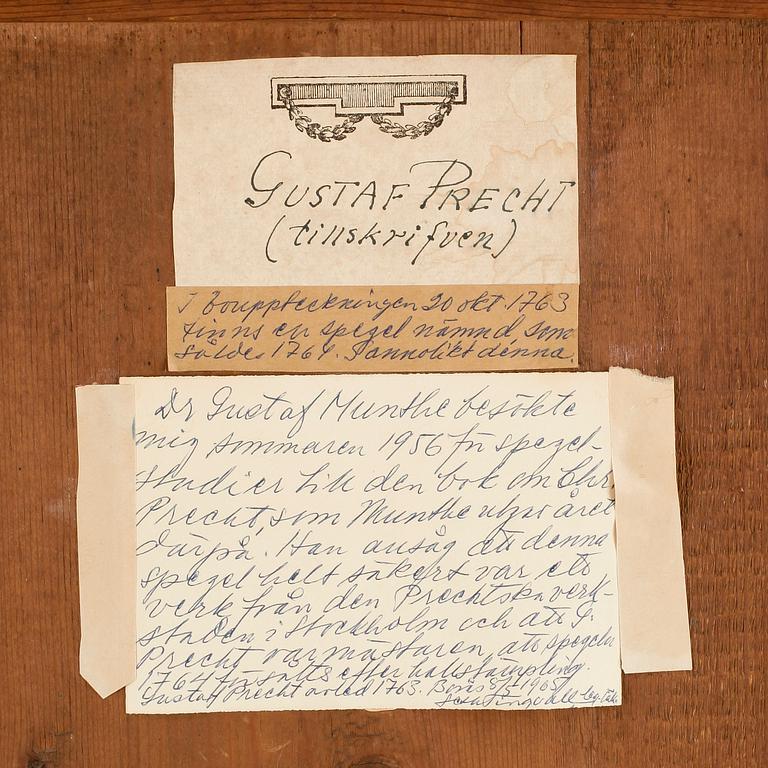 GUSTAF PRECHT
(tillskrifven)
I bouppteckningen 20 okt. 1763
finns en spegel nämnd som
såldes 1764. Sannolikt denna.
Dr Gustaf Munthe besökte
mig sommaren 1956 för spegel-
studier till den bok om Chr
Precht, som Munthe utgav året
därpå. Han ansåg att denna
spegel helt säkert var ett
verk från den Prechtska verk-
staden i Stockholm och att G.
Precht var mästaren, att spegeln
1764 försålts efter hallstämpling.
Gustaf Precht avled 1763. Borås